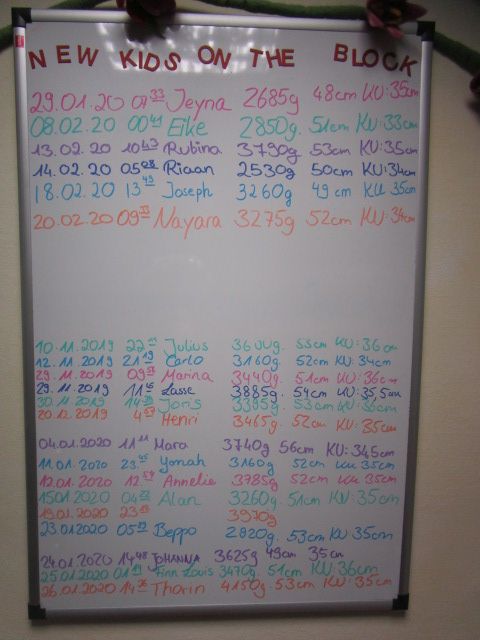 NEW KIDS ON THE BLOCK
29.01.20 07³³ Jeyna 2685g 48cm KU: 35cm
08.02.20 00⁴¹ Eike 2850g. 51cm KU: 33cm
13.02.20 10⁴³ Rubina 3790g 53cm KU: 35cm
14.02.20 05²⁸ Riaan 2530g 50cm KU: 34cm
18.02.20 13⁴⁹ Joseph 3260g 49cm KU 35cm
20.02.20 09 Nayara 3275g 52cm KU: 34cm
10.11.2019 22 Julius 3600g. 53cm KU: 36cm
12.11.2019 21¹⁹ Carlo 3160g 52cm KU: 34cm
29.11.2019 09 Marina 3440g. 51cm KU: 36cm
29.11.2019 11 Lasse 3885g. 54cm KU: 35,5cm
30.11.2019 14 Joris 3395g 53cm KU: 36cm
20.12.2019 4 Henri 3465g. 52cm KU: 35cm
04.01.2020 11 Mara 3740g 56cm KU: 34,5cm
11.01.2020 23 Yonah 3160g 52cm KU 35cm
12.01.2020 12⁵⁹ Annelie 3785g 52cm KU 35cm
15.01.2020 04 Alan 3260g. 51cm KU: 35cm
19.01.2020 23 3970g
23.01.2020 05 Beppo 2820g. 53cm KU 35cm
24.01.2020 14⁴⁸ JOHANNA 3625g 49cm 35cm
25.01.2020 01¹⁹ Finn Louis 3470g. 51cm KU: 36cm
26.01.2020 14 Thorin 4150g. 53cm KU: 35cm